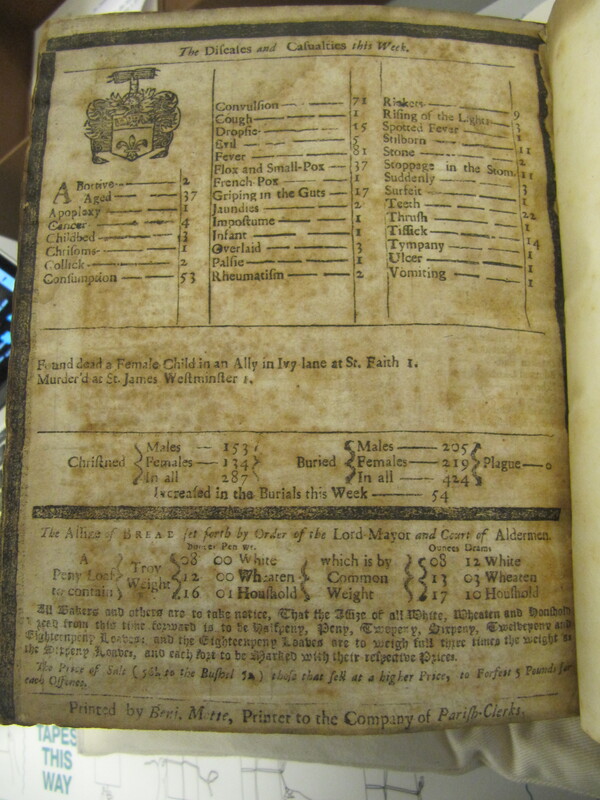 The Diſeaſes and Caſualties this Week.
ABortive 2
Aged 37
Apoplexy 1
Cancer 4
Childbed 3
Chriſoms 1
Collick 2
Conſumption 53
Convulſion 71
Cough 1
Dropſie 15
Evil 5
Fever 81
Flox and Small-Pox 37
French-Pox 1
Griping in the Guts 17
Jaundies 2
Impoſtume 1
Infant 1
Overlaid 3
Palſie 1
Rheumatiſm 2
Rickets
Riſing of the Lights 9
Spotted Fever 3
Stilborn
Stone 11
Stoppage in the Stom. 2
Suddenly 11
Surfeit 3
Teeth 1
Thruſh 22
Tiſſick 1
Tympany 14
Ulcer 1
Vomiting 1
Found dead a Female Child in an Ally in Ivy lane at St. Faith 1.
Murder'd at St. James Weſtminſter 1.
Chriſtned Males 153 Females 134 In all 287
Buried Males 205 Females 219 In all 424 Plague 0
Increaſed in the Burials this Week 54
The Aſſize of BREAD ſet forth by Order of the Lord-Mayor and Court of Aldermen.
Ounces Pen wt. Ounces Drams
A Peny Loaf to contain Troy Weight 08 00 White which is by Common Weight 08 12 White
12 00 Wheaten 13 03 Wheaten
16 01 Houſhold 17 10 Houſhold
All Bakers and others are to take notice, That the Aſſize of all White, Wheaten and Houſhold
Bread from this time forward is to be Halfpeny, Peny, Twopeny, Sixpeny, Twelvepeny and
Eighteenpeny Loaves: and the Eighteenpeny Loaves are to weigh full three times the weight of
the Sixpeny Loaves, and each ſort to be Marked with their reſpective Prices.
The Price of Salt (56l. to the Buſhel 5s.) thoſe that ſell at a higher Price, to Forfeit 5 Pounds for
each Offence.
Printed by Benj. Motte, Printer to the Company of Pariſh-Clerks.
TAPES
THIS
WAY